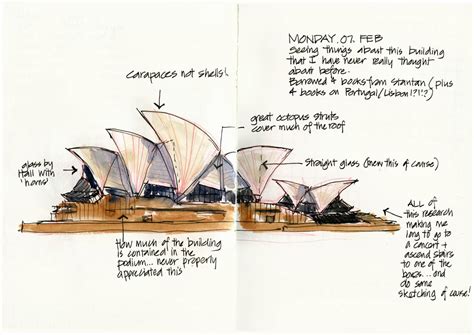 MONDAY. 07. FEB
Seeing things about this building
that I have never really thought
about before.
Borrowed 4 books from Stanton (plus
4 books on Portugal (Lisbon !?!?)
carapaces not shells!
great octopus struts
cover much of the roof
glass by
Hall with
horns)
Straight glass (knew this of course)
How much of the building
is contained in the
podium... never properly
appreciated this
ALL OF
this research
making me
long to go to
a concert +
ascend stairs
to one of the
boxes...and
do some
sketching of course!